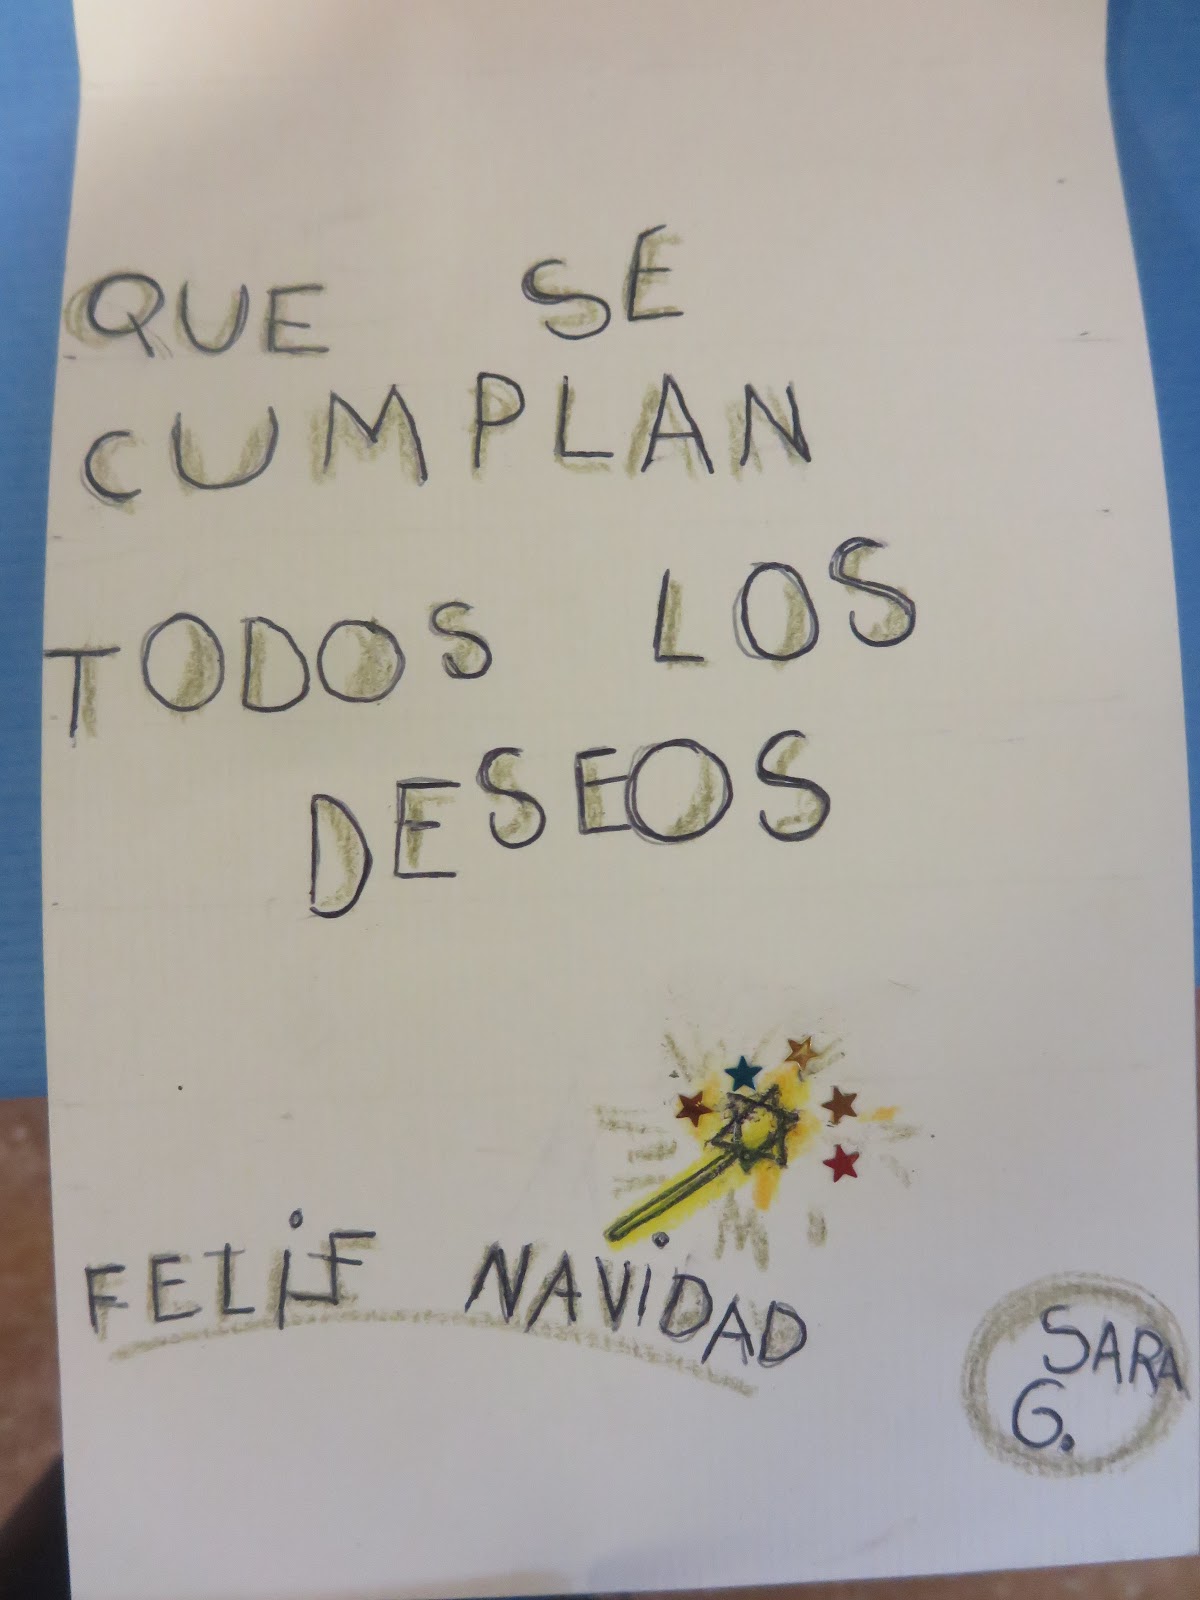 QUE SE
CUMPLAN
TODOS LOS
DESEOS
FELIZ NAVIDAD
SARA
G.